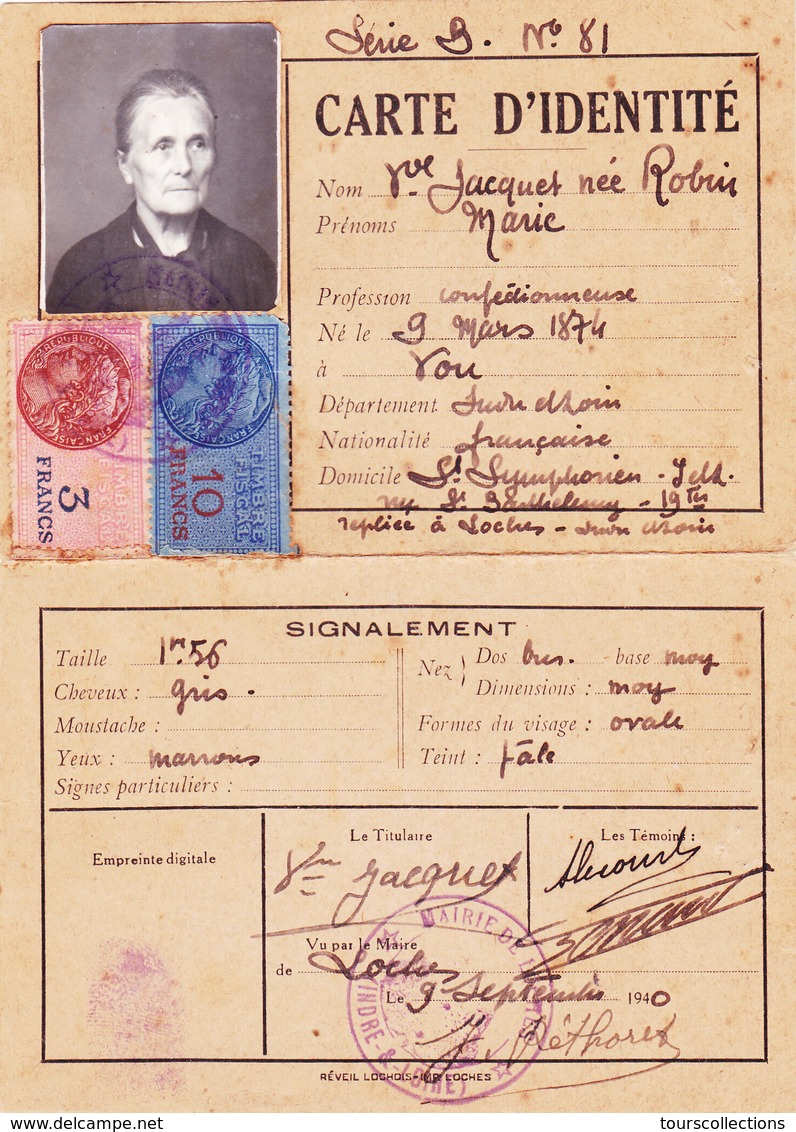 Série B. No 81
CARTE D'IDENTITÉ
Nom Vve Jacquet née Robin
Prénoms Marie
Profession confectionneuse
Né le 9 Mars 1874
à Vou
Département Indre et Loire
Nationalité française
Domicile St Symphorien - I et L.
St Barthelemy - 19
repliée à Loches - Indre et Loire
RÉPUBLIQUE
FRANÇAISE
TIMBRE
FISCAL
3
FRANCS
RÉPUBLIQUE
FRANÇAISE
TIMBRE
FISCAL
10
FRANCS
SIGNALEMENT
Taille 1m56
Cheveux : gris.
Moustache :
Yeux : marrons
Signes particuliers :
Nez Dos bus. base moy
Dimensions : moy
Formes du visage : ovale
Teint : pâle
Empreinte digitale
Le Titulaire
Vve Jacquet
Les Témoins :
Vu par le Maire
de Loches
Le 9 Septembre 1940
MAIRIE DE
(INDRE & LOIRE)
RÉVEIL LOCHOIS-IMP. LOCHES
tourscollections